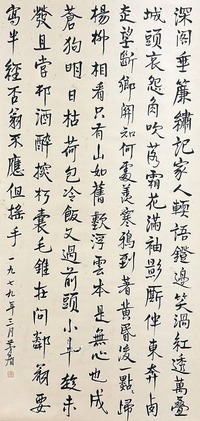 深閣垂簾繡記家人輭語鐙邊笑渦紅透萬疊
城頭哀怨角吹落霜花滿袖影厮伴東奔卤
走望斷鄉關知何處羨寒鴉到著黃昏後一點歸
楊柳相看只有山如舊歎浮雲本是無心也成
蒼狗明日枯荷包冷飯又過前頭小阜趁未
發且嘗邨酒醉探枵囊毛錐在問鄰翁要
寫牛經否翁不應但搖手 一九七九年二月茅盾